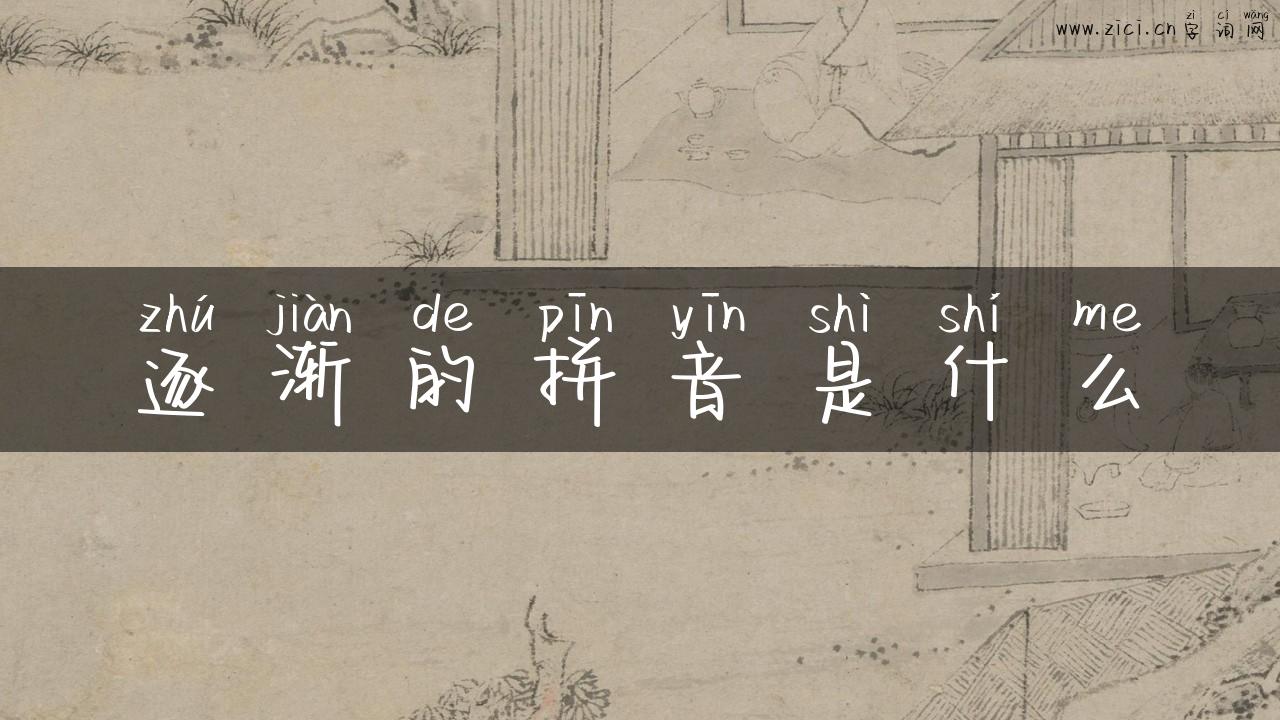 zì cí wǎng
www.zici.cn 字 词 网
zhú jiàn de pīn yīn shì shí me
逐 渐 的 拼 音 是 什 么